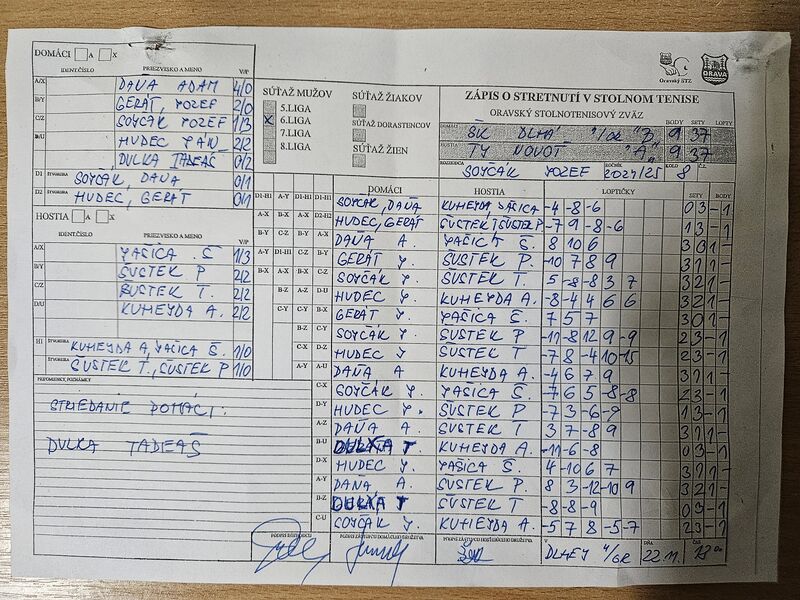 DOMÁCI A X
IDENT.ČÍSLO PRIEZVISKO A MENO V/P
A/X DAŇA ADAM 4/0
B/Y GERÁT JOZEF 2/0
C/Z SOJČÁK JOZEF 1/3
D/U HUDEC JÁN 2/2
DULKA TADEÁŠ 0/2
D1 ŠTVORHRA SOJČÁK, DAŇA 0/1
D2 ŠTVORHRA HUDEC, GERÁT 0/1
HOSTIA A X
IDENT.ČÍSLO PRIEZVISKO A MENO V/P
A/X JAŠICA Š 1/3
B/Y ŠUSTEK P 2/2
C/Z ŠUSTEK T. 2/2
D/U KUHEJDA A. 2/2
H1 ŠTVORHRA KUHEJDA A, JAŠICA Š. 1/0
ŠTVORHRA ŠUSTEK T., ŠUSTEK P 1/0
PRIPOMIENKY, POZNÁMKY
STRIEDANIE DOMÁCI:
DULKA TADEÁŠ
SÚŤAŽ MUŽOV
5.LIGA
X 6.LIGA
7.LIGA
8.LIGA
SÚŤAŽ ŽIAKOV
SÚŤAŽ DORASTENCOV
SÚŤAŽ ŽIEN
Oravský STZ
ORAVA
ZÁPIS O STRETNUTÍ V STOLNOM TENISE
ORAVSKÝ STOLNOTENISOVÝ ZVÄZ
DOMÁCI ŠK DLHÁ n/OR "B" BODY 9 SETY 37
HOSTIA TJ NOVOŤ "A" 9 37
ROZHODCA SOJČÁK JOZEF 2024/25 KOLO 8 Č.Z.
DOMÁCI HOSTIA LOPTIČKY SETY BODY
D1-H1 SOJČÁK, DAŇA KUHEJDA, JAŠICA -4 -8 -6 0 3 - 1
D2-H2 HUDEC, GERÁT ŠUSTEK T, ŠUSTEK P -7 9 -8 -6 1 3 - 1
A-X DAŇA A. JAŠICA Š. 8 10 6 3 0 1 -
B-Y GERÁT J. ŠUSTEK P. -10 7 8 9 3 1 1 -
C-Z SOJČÁK J. ŠUSTEK T. 5 -8 -8 3 7 3 2 1 -
D-U HUDEC J. KUHEJDA A. -8 -4 4 6 6 3 2 1 -
GERÁT J JAŠICA Š. 7 5 7 3 0 1 -
C-Y SOJČÁK J ŠUSTEK P -11 -8 12 9 -9 2 3 - 1
HUDEC J ŠUSTEK T -7 8 -4 10 -15 2 3 - 1
A-U DAŇA A KUHEJDA A. -4 6 7 9 3 1 1 -
C-X SOJČÁK J. JAŠICA Š. -7 6 5 -8 -8 2 3 - 1
D-Y HUDEC J. ŠUSTEK P -7 3 -6 -9 1 3 - 1
A-Z DAŇA A. ŠUSTEK T 3 7 -8 9 3 1 1 -
B-U DULKA T KUHEJDA A. -11 -6 -8 0 3 - 1
D-X HUDEC J. JAŠICA Š. 4 -10 6 7 3 1 1 -
A-Y DAŇA A ŠUSTEK P. 8 3 -12 -10 9 3 2 1 -
B-Z DULKA T ŠUSTEK T -8 -8 -9 0 3 - 1
C-U SOJČÁK J. KUHEJDA A. -5 7 8 -5 -7 2 3 - 1
PODPIS ROZHODCU PODPIS ZÁSTUPCU DOMÁCEHO DRUŽSTVA PODPIS ZÁSTUPCU HOSŤUJÚCEHO DRUŽSTVA V DLHEJ n/OR DŇA 22.11.